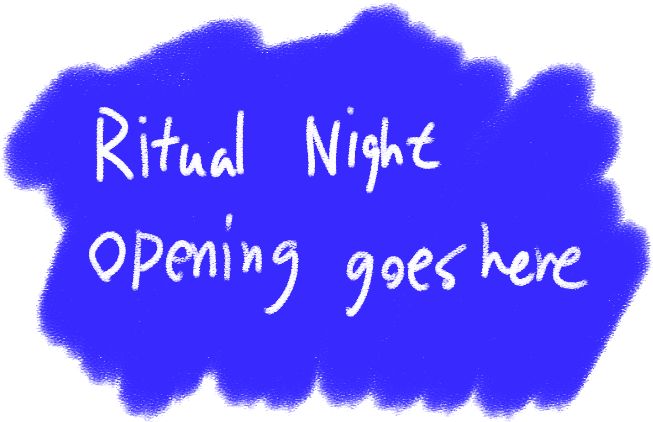 Ritual Night
opening goes here